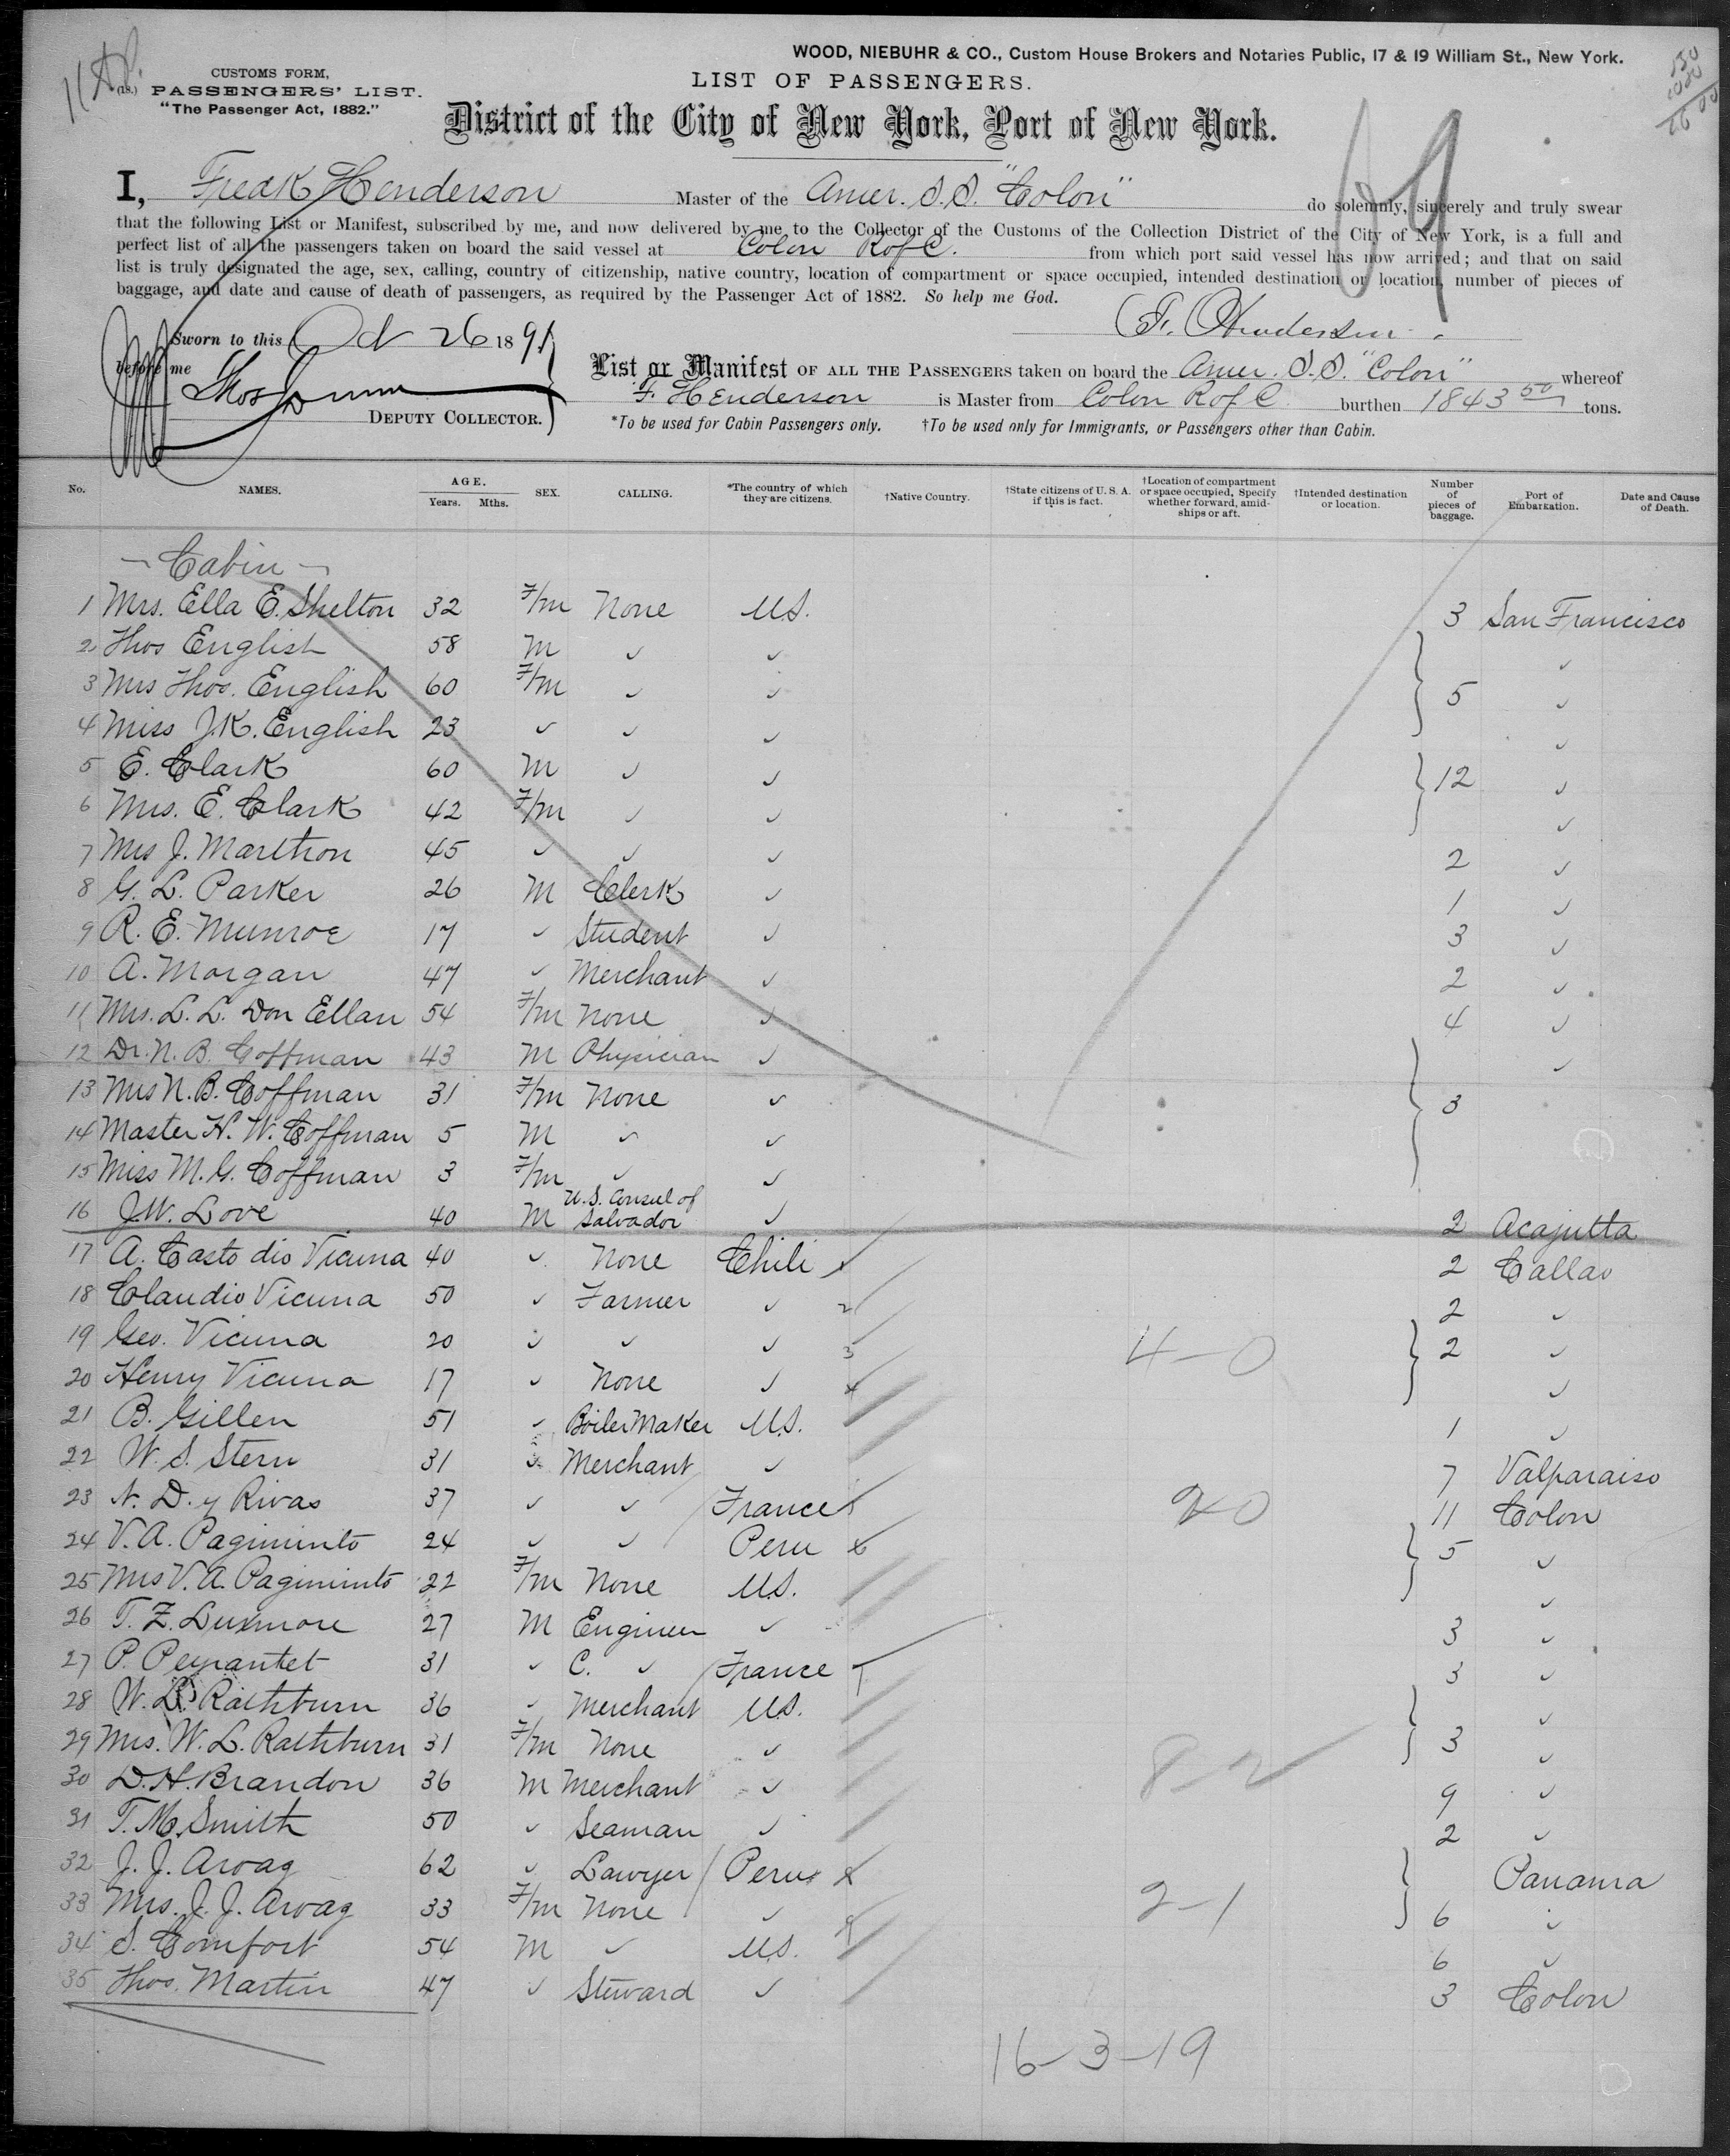 WOOD, NIEBUHR & CO., Custom House Brokers and Notaries Public, 17 & 19 William St., New York.
CUSTOMS FORM,
PASSENGERS' LIST.
"The Passenger Act, 1882."
LIST OF PASSENGERS.
District of the City of New York, Port of New York.
I, Fredk Henderson Master of the Amer. S.S. "Colon" do solemnly, sincerely and truly swear
that the following List or Manifest, subscribed by me, and now delivered by me to the Collector of the Customs of the Collection District of the City of New York, is a full and
perfect list of all the passengers taken on board the said vessel at Colon R of C. from which port said vessel has now arrived; and that on said
list is truly designated the age, sex, calling, country of citizenship, native country, location of compartment or space occupied, intended destination or location, number of pieces of
baggage, and date and cause of death of passengers, as required by the Passenger Act of 1882. So help me God.
F. Henderson.
Sworn to this Oct 26 1891
before me
DEPUTY COLLECTOR.
List or Manifest OF ALL THE PASSENGERS taken on board the Amer. S.S. "Colon" whereof
F. Henderson is Master from Colon R of C burthen 1843 50 tons.
*To be used for Cabin Passengers only. †To be used only for Immigrants, or Passengers other than Cabin.
No. NAMES. AGE. Years. Mths. SEX. CALLING. *The country of which they are citizens. †Native Country. †State citizens of U. S. A. if this is fact. †Location of compartment or space occupied, Specify whether forward, amidships or aft. †Intended destination or location. Number of pieces of baggage. Port of Embarkation. Date and Cause of Death.
- Cabin -
1 Mrs. Ella E. Shelton 32 F/m None U.S. 3 San Francisco
2 Thos English 58 M ✓ ✓ ✓
3 Mrs Thos. English 60 F/m ✓ ✓ 5 ✓
4 Miss J.K. English 23 ✓ ✓ ✓ ✓
5 E. Clark 60 M ✓ ✓ 12 ✓
6 Mrs. E. Clark 42 F/m ✓ ✓ ✓
7 Mrs J. Marthon 45 ✓ ✓ ✓ 2 ✓
8 G. L. Parker 26 M Clerk ✓ 1 ✓
9 R. E. Munroe 17 ✓ Student ✓ 3 ✓
10 A. Morgan 47 ✓ Merchant ✓ 2 ✓
11 Mrs. L. L. Don Ellan 54 F/m None ✓ 4 ✓
12 Dr. N. B. Coffman 43 M Physician ✓ ✓
13 Mrs N. B. Coffman 31 F/m None ✓ 3
14 Master H. W. Coffman 5 M ✓ ✓
15 Miss M. G. Coffman 3 F/m ✓ ✓
16 J.W. Love 40 M U.S. Consul of Salvador ✓ 2 Acajutta
17 A. Casto dio Vicuna 40 ✓ None Chili 2 Callao
18 Claudio Vicuna 50 ✓ Farmer ✓ 2 2 ✓
19 Geo. Vicuna 20 ✓ ✓ ✓ 3 4-0 2 ✓
20 Henry Vicuna 17 ✓ None ✓ 4 ✓
21 B. Gillen 51 ✓ Boiler Maker U.S. 1 ✓
22 W. S. Stern 31 ✓ Merchant ✓ 7 Valparaiso
23 N. D. y Rivas 37 ✓ ✓ France 11 Colon
24 V. A. Pagiminto 24 ✓ ✓ Peru 6 5 ✓
25 Mrs V. A. Pagiminto 22 F/m None U.S. ✓
26 T. Z. Luxmore 27 M Engineer ✓ 3 ✓
27 P. Peyrantet 31 ✓ C. ✓ France 7 3 ✓
28 W. L. Rathburn 36 ✓ Merchant U.S. ✓
29 Mrs. W. L. Rathburn 31 F/m None ✓ 8-2 3 ✓
30 D. H. Brandon 36 M Merchant ✓ 9 ✓
31 T. M. Smith 50 ✓ Seaman ✓ 2 ✓
32 J. J. Arvag 62 ✓ Lawyer Peru 8 Panama
33 Mrs. J. J. Arvag 33 F/m None ✓ 9 2-1 6 ✓
34 S. Comfort 54 M ✓ U.S. 6 ✓
35 Thos. Martin 47 ✓ Steward ✓ 3 Colon
16-3-19